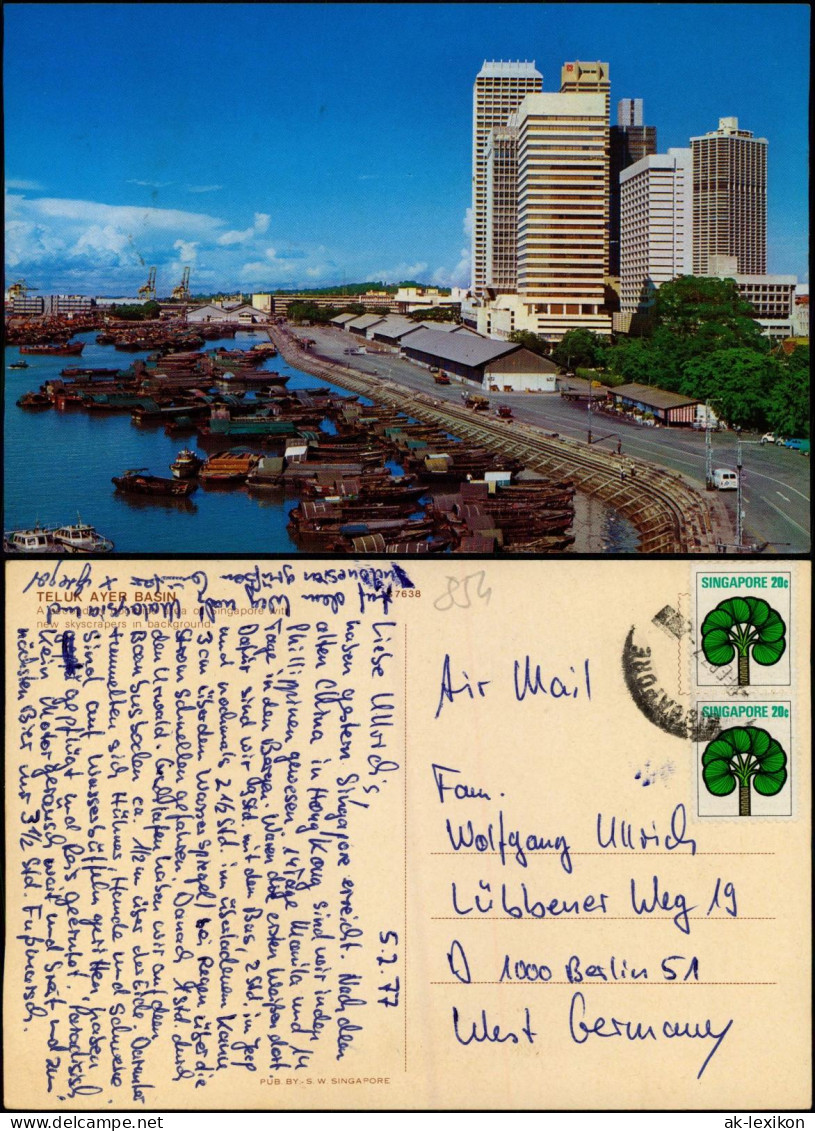 TELUK AYER BASIN
new skyscrapers in background.
7638
854
SINGAPORE 20c
SINGAPORE 20c
SINGAPORE
Air Mail
Fam.
Wolfgang Ullrich
Lübbener Weg 19
D 1000 Berlin 51
West Germany
5.2.77
Liebe Ullrich's,
haben gestern Singapore erreicht. Nach dem
alten China in Hong Kong sind wir in den
Phillippinen gewesen 14 Tage Manila und 14
Tage in den Bergen. Waren die ersten Weißen dort
Dafür sind wir 9 Std mit dem Bus, 2 Std im Jeep
und nochmals 2 1/2 Std im überladenen Kanu
3 cm über dem Wasserspiegel bei Regen über die
Stromschnellen gefahren. Danach Std. durch
den Urwald. Geschlafen haben wir auf dem
Bambusboden ca. 1/2 m über der Erde. Darunter
tummelten sich Hühner Hunde und Schweine.
Sind auf Wasserbüffeln geritten, haben
gepflügt und Reis geerntet. Paradisisch
Kein Motorgeräusch weit und breit und zum
nächsten Bier nur 3 1/2 Std. Fußmarsch.
PUB. BY:- S.W. SINGAPORE
ak-lexikon.com